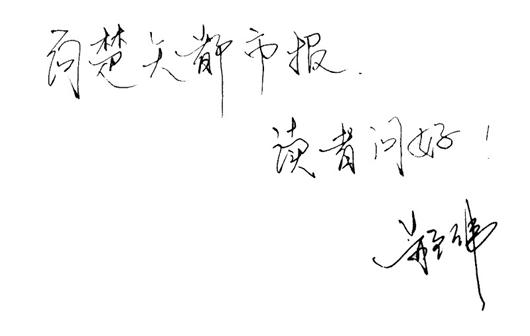 向楚天都市报
读者问好！